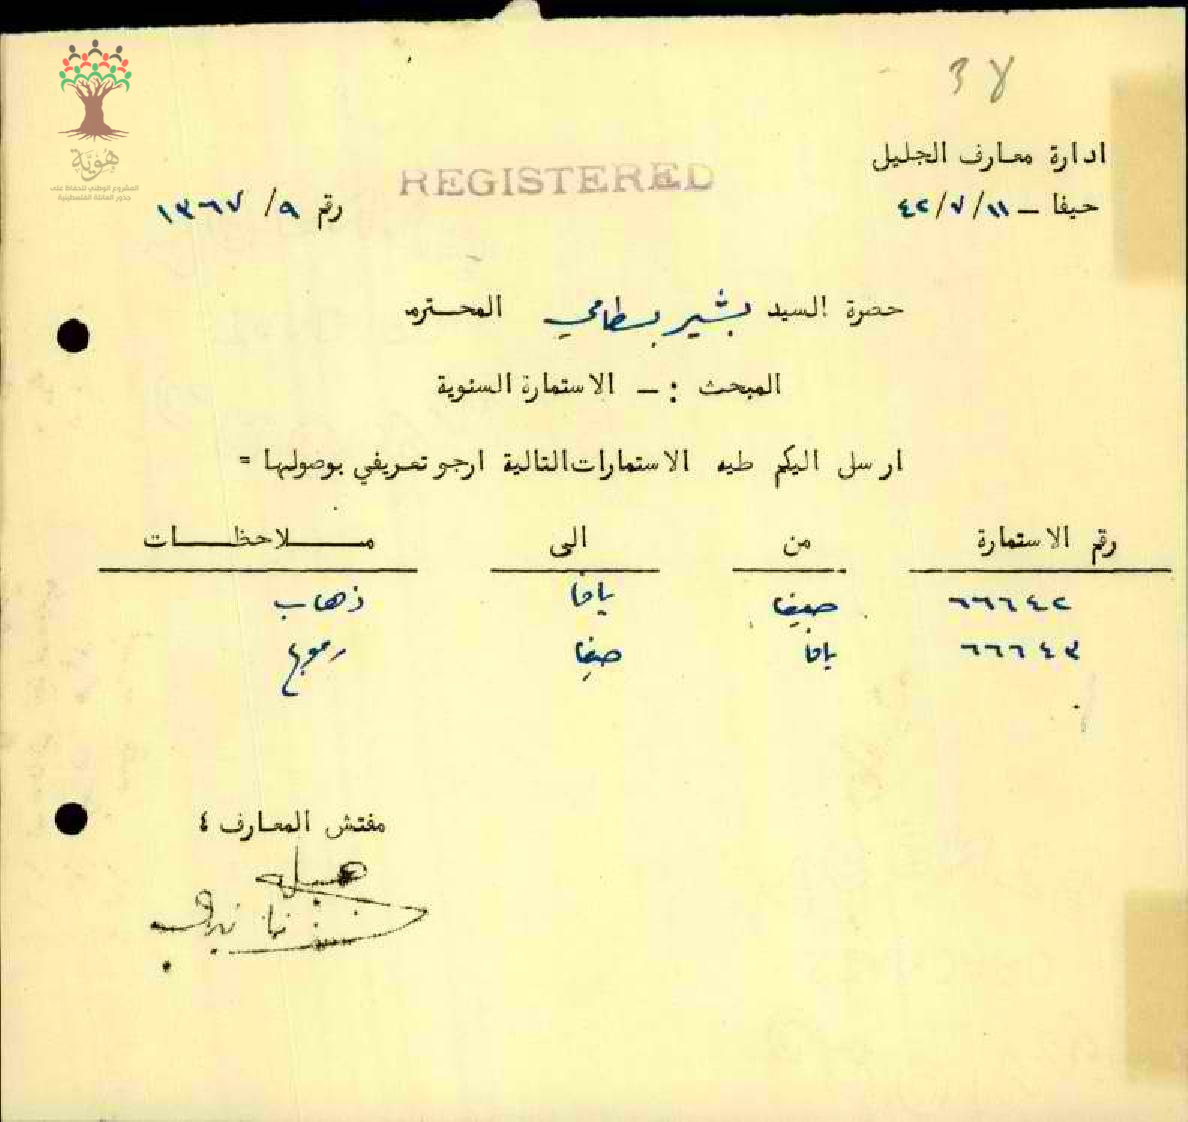 ٣٧
ادارة معارف الجليل
حيفا – ١١/٧/٤٢
رقم ٩/ ١٣٦٧
REGISTERED
هُويَّة
المشروع الوطني للحفاظ على
جذور العائلة الفلسطينية
حضرة السيد بشير بسطامي المحترم
المبحث :– الاستمارة السنوية
ارسل اليكم طيه الاستمارات التالية ارجو تعريفي بوصولها =
رقم الاستمارة من الى ملاحظات
٦٦٦٤٢ حيفا يافا ذهاب
٦٦٦٤٣ يافا حيفا رجوع
مفتش المعارف ٤